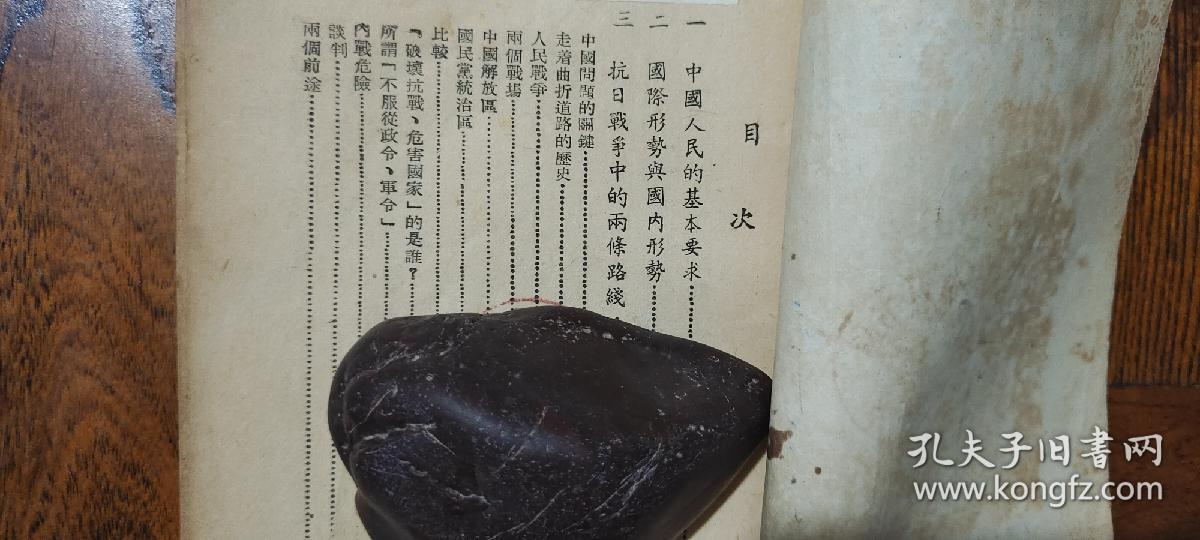 目次
一 中國人民的基本要求
二 國際形勢與國內形勢
三 抗日戰爭中的兩條路綫
中國問題的關鍵
走着曲折道路的歷史
人民戰爭
兩個戰場
中國解放區
國民黨統治區
比較
「破壞抗戰、危害國家」的是誰？
所謂「不服從政令、軍令」
內戰危險
談判
兩個前途
孔夫子旧书网
www.kongfz.com